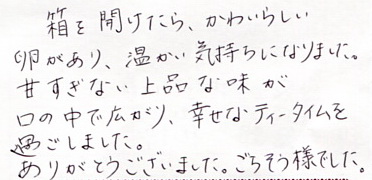 箱を開けたら、かわいらしい
卵があり、温かい気持ちになりました。
甘すぎない上品な味が
口の中で広がり、幸せなティータイムを
過ごしました。
ありがとうございました。ごちそう様でした。